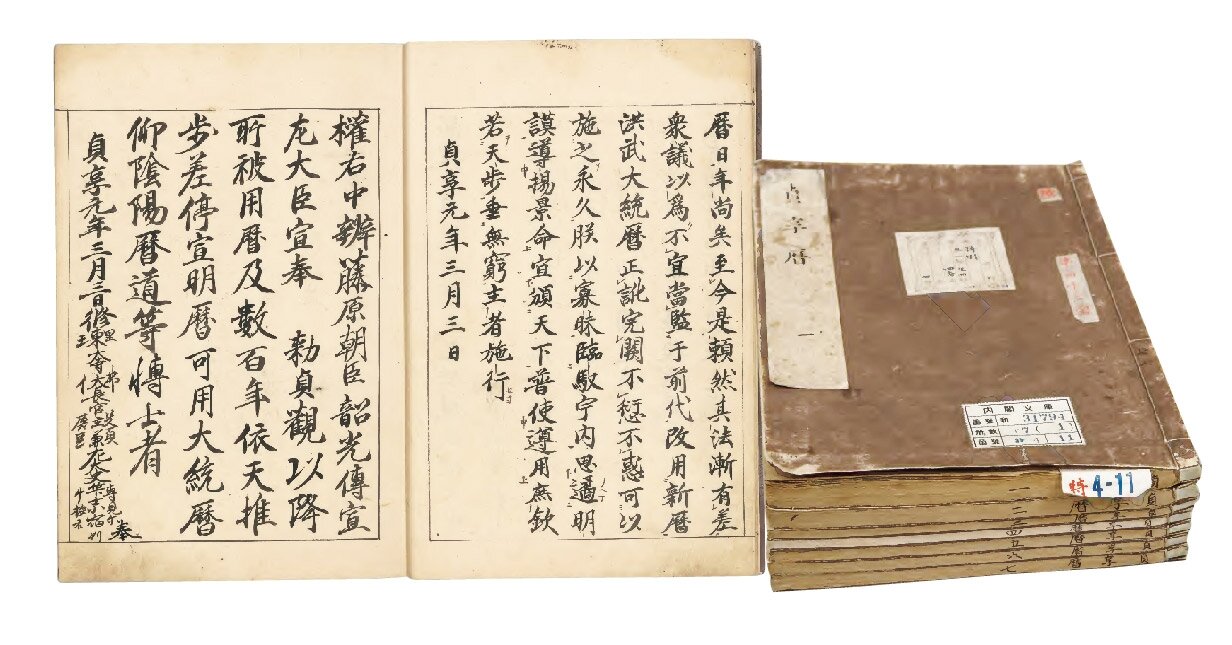 曆日年尚矣至今是賴然其法漸有差
衆議以爲不宜當監于前代改用新曆
洪武大統曆正訛完闕不愆不惑可以
施之永久朕以寡昧臨馭宇內思遹明
謨導揚景命宜頒天下普使遵用庶欽
若天步垂無窮主者施行
貞享元年三月三日
權右中辨藤原朝臣韶光傳宣
左大臣宣奉 勅貞觀以降
所被用曆及數百年依天推
步差停宣明曆可用大統曆
仰陰陽曆道等博士者
貞享元年三月三日修理東
奉
貞享曆 一
內閣文庫
31794
7(1)
11
特 4-11
二
三
四
五
六
七